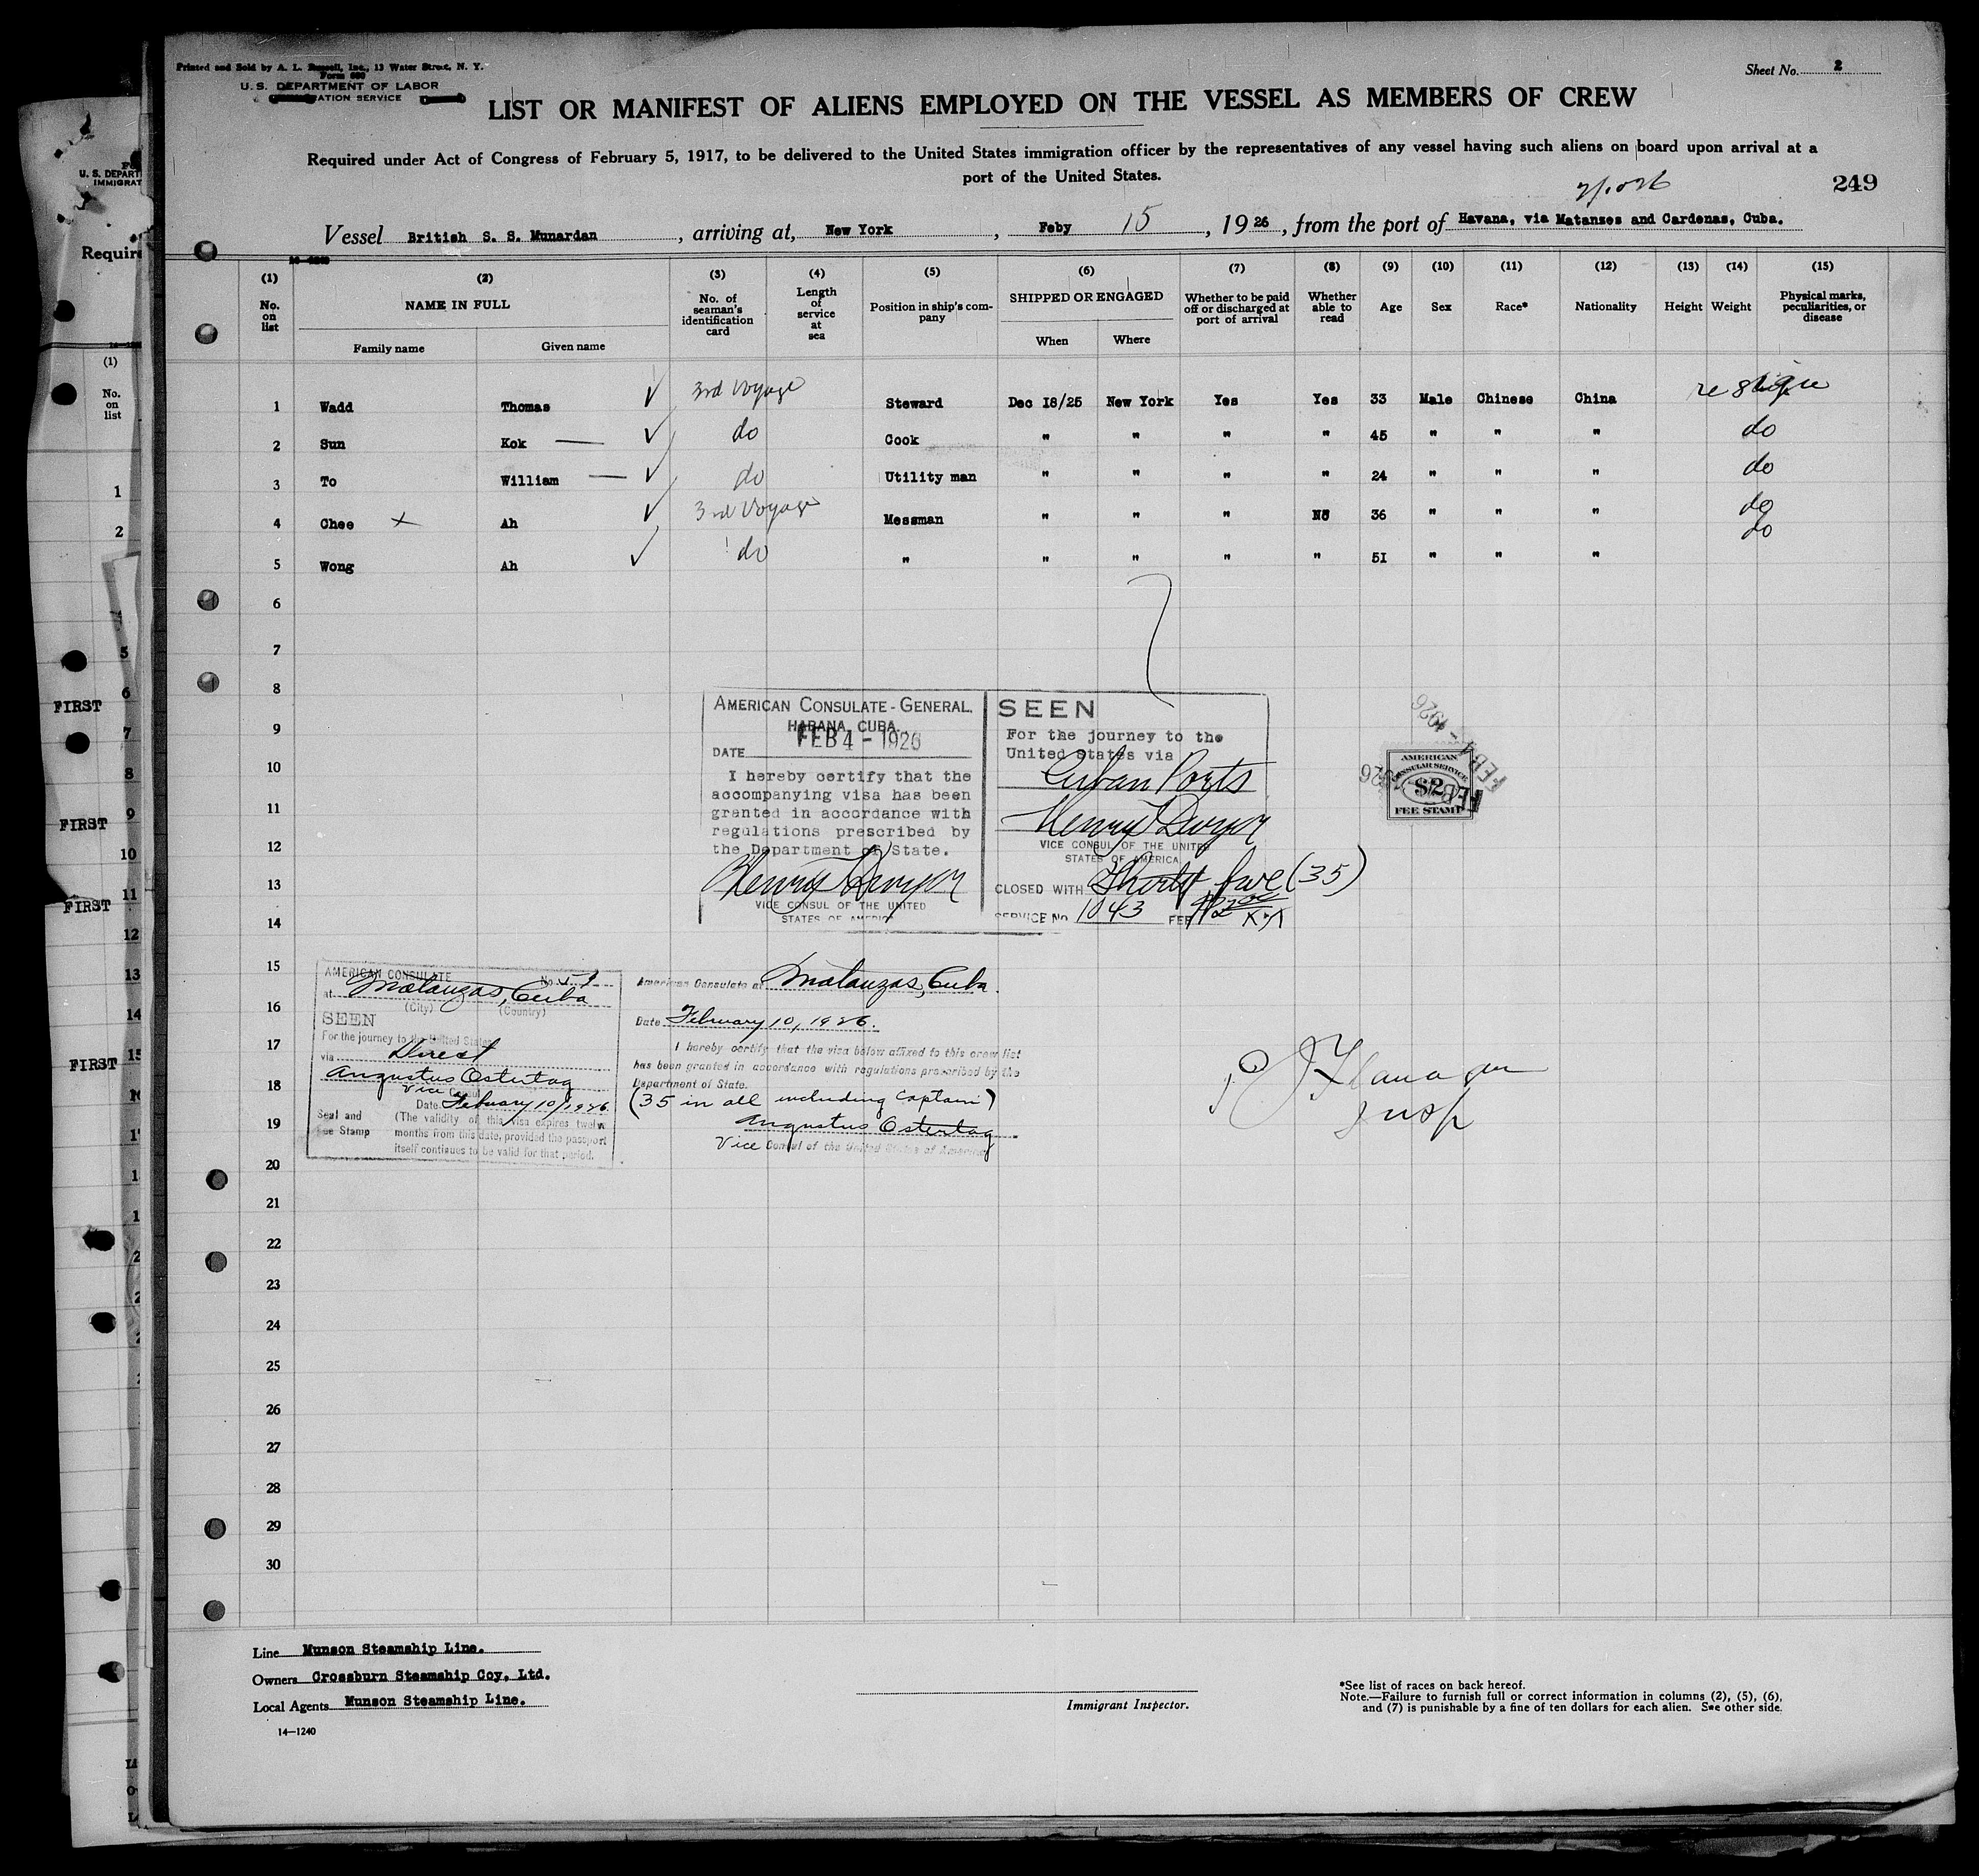 Printed and Sold by A. L. Russell, Inc., 13 Water Street, N. Y.
Form 680
U. S. DEPARTMENT OF LABOR
Sheet No. 2
LIST OR MANIFEST OF ALIENS EMPLOYED ON THE VESSEL AS MEMBERS OF CREW
Required under Act of Congress of February 5, 1917, to be delivered to the United States immigration officer by the representatives of any vessel having such aliens on board upon arrival at a
port of the United States.
249
Vessel British S. S. Munardan, arriving at, New York, Feby 15, 1926, from the port of Havana, via Matanzes and Cardenas, Cuba.
(1) (2) (3) (4) (5) (6) (7) (8) (9) (10) (11) (12) (13) (14) (15)
No. on list NAME IN FULL No. of seaman's identification card Length of service at sea Position in ship's company SHIPPED OR ENGAGED Whether to be paid off or discharged at port of arrival Whether able to read Age Sex Race* Nationality Height Weight Physical marks, peculiarities, or disease
Family name Given name When Where
1 Wadd Thomas ✓ 3rd Voyage Steward Dec 18/25 New York Yes Yes 33 Male Chinese China
2 Sun Kok — ✓ do Cook " " " " 45 " " " do
3 To William — ✓ do Utility man " " " " 24 " " " do
4 Chee x Ah ✓ 3rd Voyage Messman " " " No 36 " " " do
5 Wong Ah ✓ do " " " " " 51 " " " do
6
7
8
9
10
11
12
13
14
15
16
17
18
19
20
21
22
23
24
25
26
27
28
29
30
AMERICAN CONSULATE-GENERAL,
HABANA, CUBA.
DATE FEB 4 - 1926
I hereby certify that the
accompanying visa has been
granted in accordance with
regulations prescribed by
the Department of State.
VICE CONSUL OF THE UNITED
STATES OF AMERICA
SEEN
For the journey to the
United States via
Cuban Ports
VICE CONSUL OF THE UNITED
STATES OF AMERICA
CLOSED WITH Thirty five (35)
SERVICE No. 1043 FEE $2.00
AMERICAN
CONSULAR SERVICE
$2
FEE STAMP
FEB 4 - 1926
AMERICAN CONSULATE
at Matanzas, Cuba
(City) (Country)
SEEN
For the journey to the United States
via Direct
Augustus Ostertag
Vice Consul
Date February 10/1926.
Seal and
Fee Stamp
(The validity of this visa expires twelve
months from this date, provided the passport
itself continues to be valid for that period.
American Consulate at Matanzas, Cuba.
Date February 10, 1926.
I hereby certify that the visa below affixed to this crew list
has been granted in accordance with regulations prescribed by the
Department of State.
(35 in all including Captain)
Augustus Ostertag
Vice Consul of the United States of America
Insp
Line Munson Steamship Line.
Owners Crossburn Steamship Coy, Ltd.
Local Agents Munson Steamship Line.
14—1240
Immigrant Inspector.
*See list of races on back hereof.
Note.—Failure to furnish full or correct information in columns (2), (5), (6),
and (7) is punishable by a fine of ten dollars for each alien. See other side.
U. S. DEPART
IMMIGRAT
Requir
(1)
No.
on
list
FIRST
FIRST
FIRST
FIRST